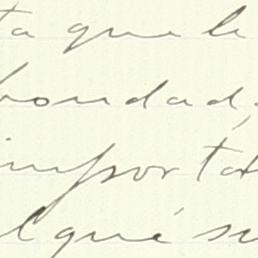 ta que le
bondad,
importa
qué su